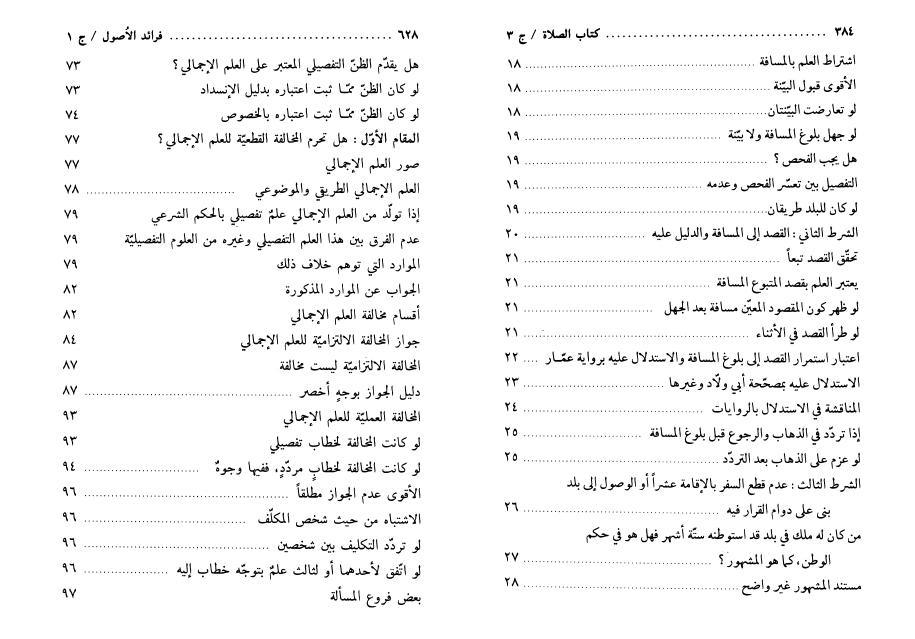 ٣٨٤ ........................................ كتاب الصلاة / ج ٣
اشتراط العلم بالمسافة ........................................ ١٨
الأقوى قبول البيّنة ........................................ ١٨
لو تعارضت البيّنتان ........................................ ١٨
لو جهل بلوغ المسافة ولا بيّنة ........................................ ١٩
هل يجب الفحص ؟ ........................................ ١٩
التفصيل بين تعسّر الفحص وعدمه ........................................ ١٩
لو كان للبلد طريقان ........................................ ١٩
الشرط الثاني : القصد إلى المسافة والدليل عليه ........................................ ٢٠
تحقّق القصد تبعاً ........................................ ٢١
يعتبر العلم بقصد المتبوع المسافة ........................................ ٢١
لو ظهر كون المقصود المعيّن مسافة بعد الجهل ........................................ ٢١
لو طرأ القصد في الأثناء ........................................ ٢١
اعتبار استمرار القصد إلى بلوغ المسافة والاستدلال عليه برواية عمّـار .... ٢٢
الاستدلال عليه بمصحّحة أبي ولّاد وغيرها ........................................ ٢٣
المناقشة في الاستدلال بالروايات ........................................ ٢٤
إذا تردّد في الذهاب والرجوع قبل بلوغ المسافة ........................................ ٢٥
لو عزم على الذهاب بعد التردّد ........................................ ٢٥
الشرط الثالث : عدم قطع السفر بالإقامة عشراً أو الوصول إلى بلد
بنى على دوام القرار فيه ........................................ ٢٦
من كان له ملك في بلد قد استوطنه ستّة أشهر فهل هو في حكم
الوطن، كما هو المشهور ؟ ........................................ ٢٧
مستند المشهور غير واضح ........................................ ٢٨
٦٢٨ ........................................ فرائد الاُصول / ج ١
هل يقدّم الظنّ التفصيلي المعتبر على العلم الإجمالي ؟ ٧٣
لو كان الظنّ ممّـا ثبت اعتباره بدليل الإنسداد ٧٣
لو كان الظنّ ممّـا ثبت اعتباره بالخصوص ٧٤
المقام الأوّل : هل تحرم المخالفة القطعيّة للعلم الإجمالي ؟ ٧٧
صور العلم الإجمالي ٧٧
العلم الإجمالي الطريقي والموضوعي ........................................ ٧٨
إذا تولّد من العلم الإجمالي علمٌ تفصيلي بالحكم الشرعي ٧٩
عدم الفرق بين هذا العلم التفصيلي وغيره من العلوم التفصيليّة ٧٩
الموارد التي توهم خلاف ذلك ٧٩
الجواب عن الموارد المذكورة ٨٢
أقسام مخالفة العلم الإجمالي ٨٢
جواز المخالفة الالتزاميّة للعلم الإجمالي ٨٤
المخالفة الالتزاميّة ليست مخالفة ٨٧
دليل الجواز بوجهٍ أخصر ........................................ ٨٧
المخالفة العمليّة للعلم الإجمالي ٩٣
لو كانت المخالفة لخطاب تفصيلي ٩٣
لو كانت المخالفة لخطابٍ مردّدٍ، ففيها وجوهٌ ........................................ ٩٤
الأقوى عدم الجواز مطلقاً ........................................ ٩٦
الاشتباه من حيث شخص المكلّف ........................................ ٩٦
لو تردّد التكليف بين شخصين ........................................ ٩٦
لو اتّفق لأحدهما أو لثالث علمٌ بتوجّه خطاب إليه ........................................ ٩٦
بعض فروع المسألة ٩٧